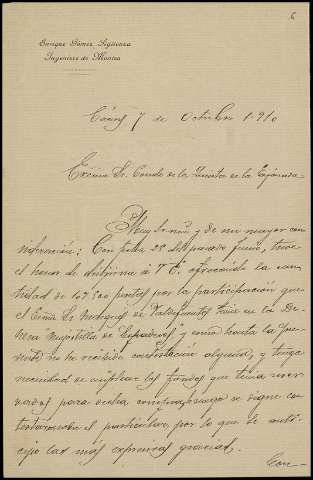 6
Enrique Gómez Sigüenza
Ingeniero de Montes
7 de Octubre 1910
Excmo Sr. Conde de la Quinta de la Enjarada
Muy Sr. mio y de mi mayor con
sideración: Con fecha 28 del pasado Junio, tuve
el honor de dirigirme a V. E. ofreciendole la can
tidad de ptas por la participación que
el Exmo Sr. Marques de Valdefuentes tiene en la De
hesa y como hasta la fpre
sente no he recibido contestación alguna, y tenga
necesidad de emplear los fondos que tenia reser
vados para dicha compra, ruego se digne con
testarme sobre el particular, por lo que le anti
cipo las más expresivas gracias.
Con